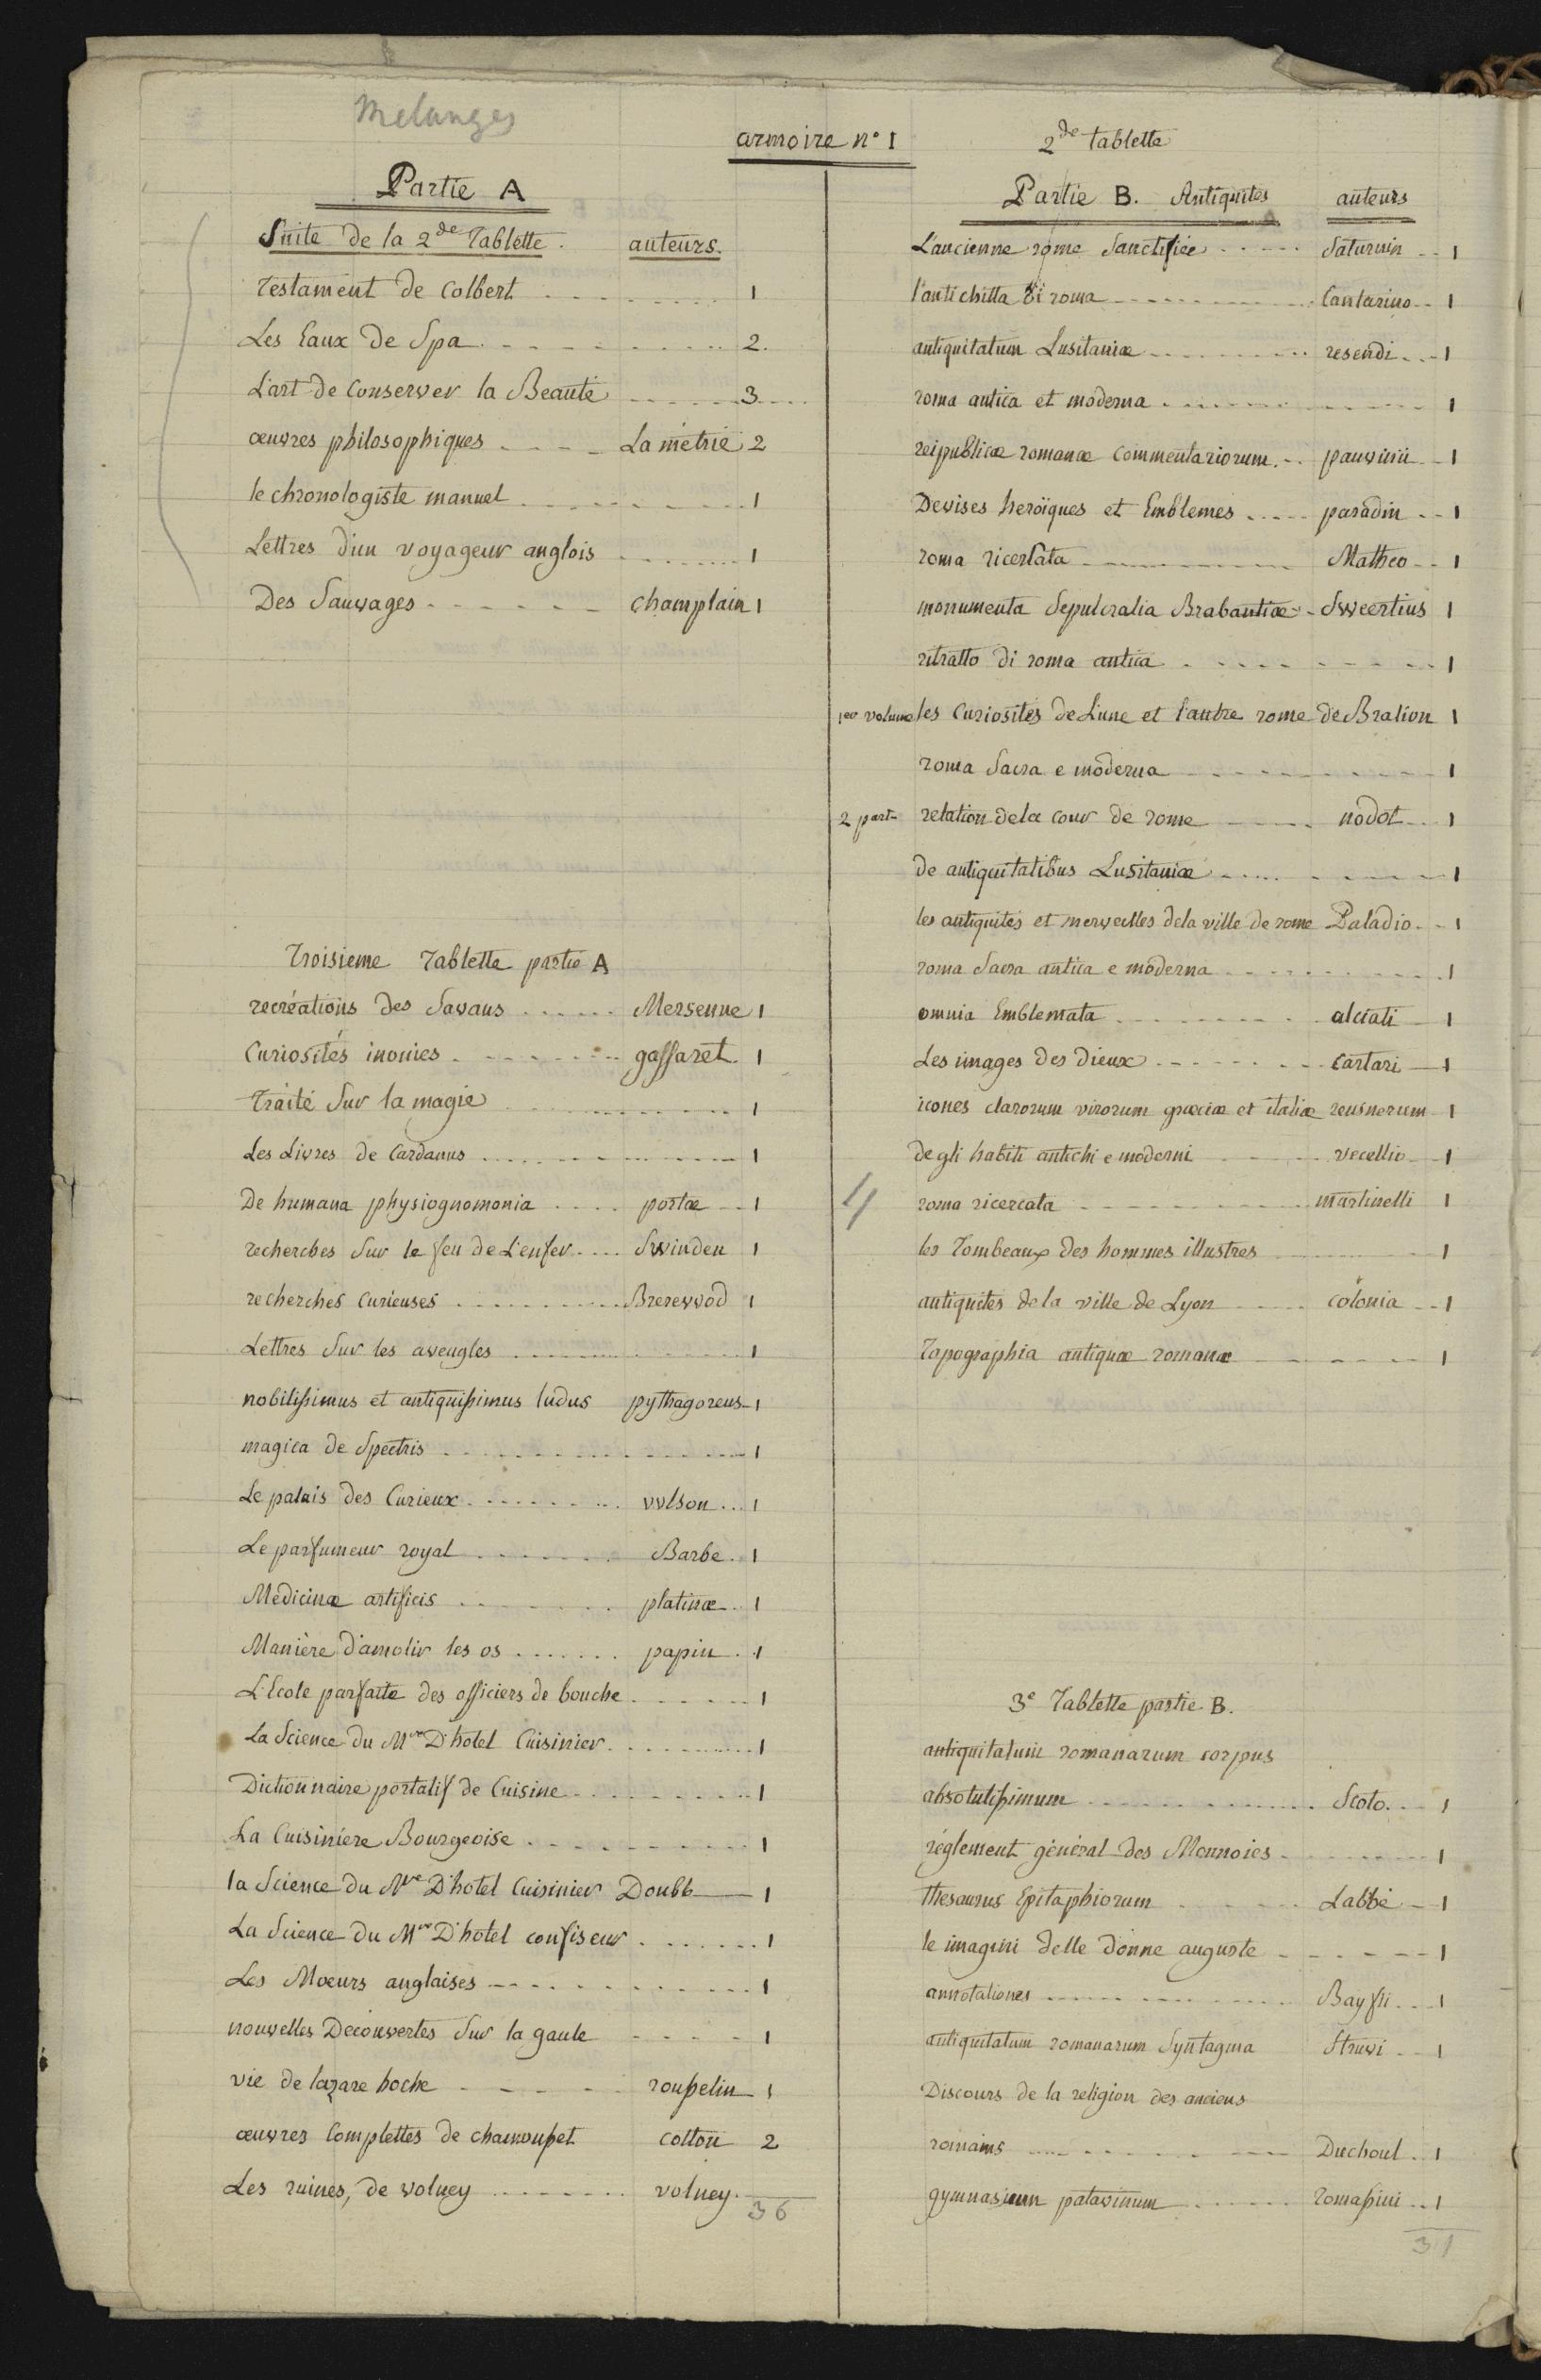 Melanges
armoire n° 1
Partie A
Suite de la 2de Tablette. auteurs.
Testament de Colbert . . . . . . . . . 1
Les Eaux de Spa . . . . . . . . . 2.
L'art de Conserver la Beauté . . . . . . 3
œuvres philosophiques . . . . La métrie 2
le chronologiste manuel . . . . . . . . 1
Lettres d'un voyageur anglois . . . . . . 1
Des Sauvages . . . . . . champlain 1
Troisieme Tablette partie A
recréations des Savans . . . . . . Mersenne 1
Curiosités inouies . . . . . . . . gaffaret. 1
Traité Sur la magie . . . . . . . . 1
Les Livres de Cardanus . . . . . . . . 1
De humana physiognomonia . . . . portæ . . 1
recherches Sur le feu de L'enfer . . . . Swinden 1
recherches Curieuses . . . . . . . . Brerewod 1
Lettres Sur les aveugles . . . . . . . . 1
nobilissimus et antiquissimus ludus pythagoreus 1
magica de Spectris . . . . . . . . 1
Le palais des Curieux . . . . . . . . vvlson . . . 1
Le parfumeur royal . . . . . . . Barbe . 1
Médicinæ artificis . . . . . . . platinæ . . 1
Manière d'amolir les os . . . . . . . papin . 1
L'Ecole parfaite des officiers de bouche . . . . . . 1
La Science du Mre D'hotel Cuisinier . . . . . . . . 1
Dictionnaire portatif de Cuisine . . . . . . . . 1
La Cuisiniere Bourgeoise . . . . . . . . 1
la Science du Mre D'hotel Cuisinier Doubb 1
La Science du Mre D'hotel confiseur . . . . . . . 1
Les Mœurs anglaises . . . . . . . . 1
nouvelles Découvertes Sur la gaule . . . . . 1
vie de lazare hoche . . . . . rousselin 1
œuvres Complettes de chamousset cotton 2
Les ruines, de volney . . . . . . . . volney.
36
2de tablette
Partie B. Antiquités auteurs
L'ancienne rome Sanctifiée . . . . . Saturnin . . 1
l'antichitta di roma . . . . . . . . Cantarino . . 1
antiquitatum Lusitaniæ . . . . . . . . resendi . . . 1
roma antica et moderna . . . . . . . . 1
reipublicæ romanæ commentariorum . . . panvinii . . 1
Devises heroïques et Emblemes . . . . . paradin . . 1
roma ricercata . . . . . . . . Matheo . . 1
monumenta Sepulcralia Brabantiæ . . Sweertius 1
ritratto di roma antica . . . . . . . . 1
1er volume les Curiosités de L'une et l'autre rome de Bralion 1
roma Sacra e moderna . . . . . . . . 1
2 part. relation de la cour de rome . . . . nodot . . 1
de antiquitatibus Lusitaniæ . . . . . . . . 1
les antiquités et merveilles de la ville de rome Paladio . . 1
roma Sacra antica e moderna . . . . . . . . 1
omnia Emblemata . . . . . . . . alciati 1
Les images des Dieux . . . . . . . cartari 1
icones clarorum virorum græciæ et italiæ reusnerum 1
de gli habiti antichi e moderni . . . . . vecellio 1
4 roma ricercata . . . . . . . . martinelli 1
les Tombeaux des hommes illustres . . . . . . 1
antiquités de la ville de Lyon . . . . . colonia . . 1
Topographia antiquæ romanæ . . . . . . 1
3e Tablette partie B.
antiquitatum romanarum corpus
absolutissimum . . . . . . . . . Scoto . . . 1
réglement général des Monnoies . . . . . . . . 1
thesaurus Epitaphiorum . . . . . Labbé 1
le imagini delle donne auguste . . . . . . 1
annotationes . . . . . . . . Bayfii . . . 1
antiquitatum romanarum Syntagma Struvi . . 1
Discours de la religion des anciens
romains . . . . . . . . Duchoul . 1
gymnasium patavinum . . . . . . romassini . . 1
31